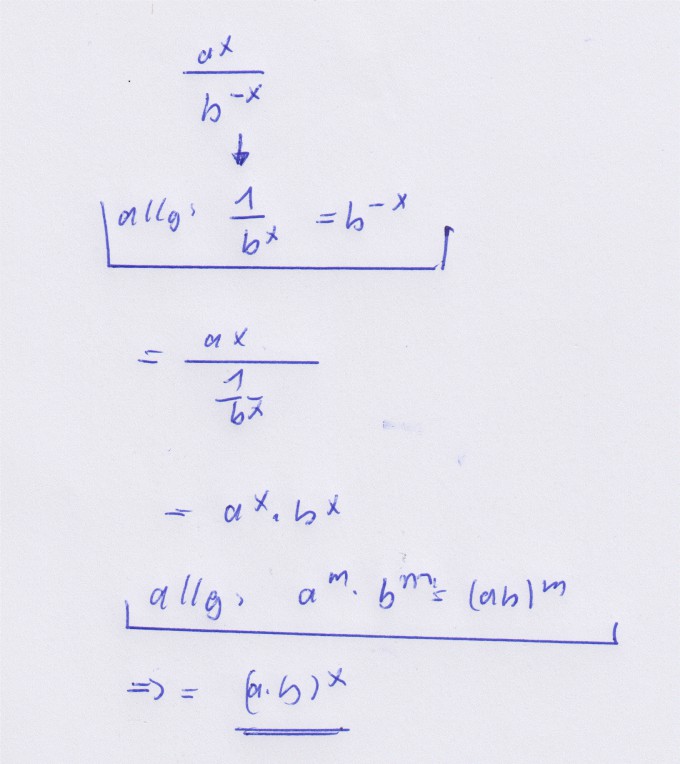 a^x / b^-x
allg: 1/b^x = b^-x
= a^x / (1/b^x)
= a^x · b^x
allg: a^m · b^m = (ab)^m
=> = (a·b)^x